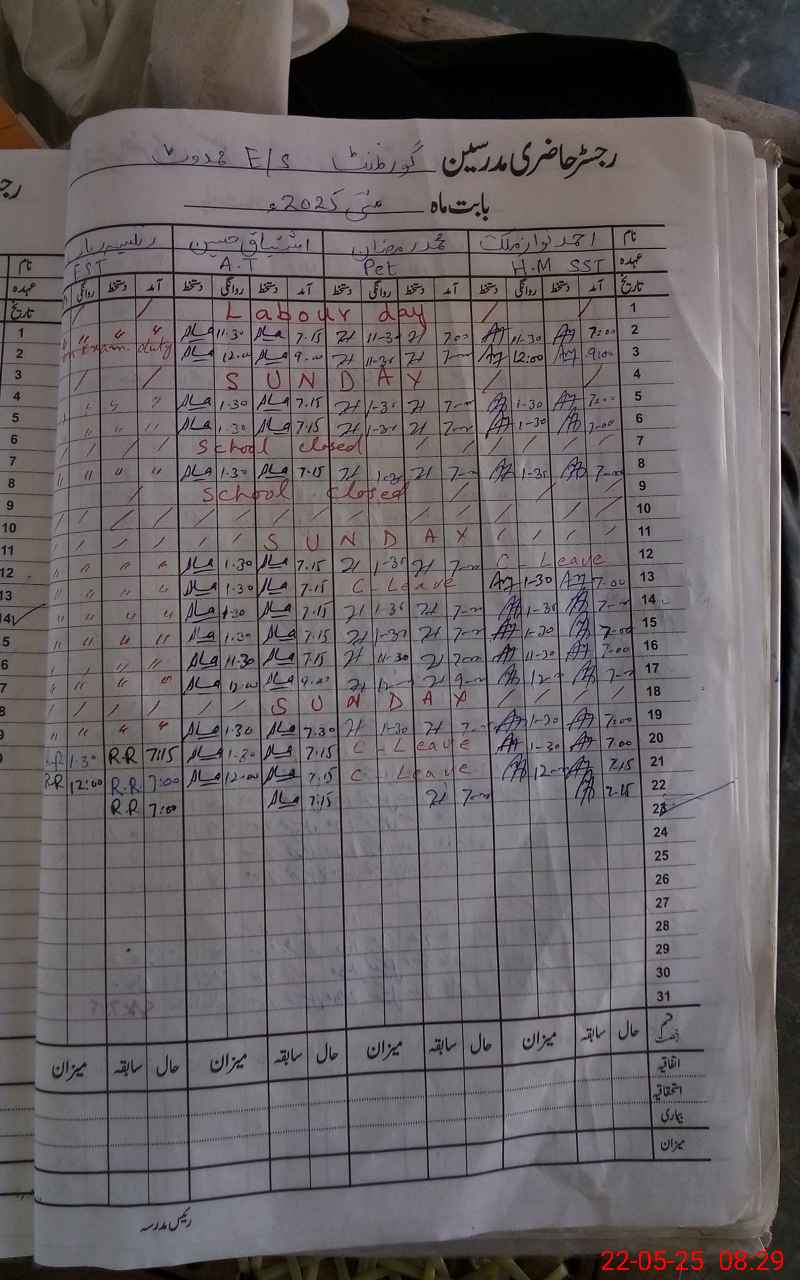 رجسٹر حاضری مدرسین گورنمنٹ E/S
بابت ماہ مئی 2025ء
نام احمد نواز ملک محمد رمضان اشتیاق حسین
عہدہ H.M SST Pet A.T EST
تاریخ آمد دستخط روانگی دستخط آمد دستخط روانگی دستخط آمد دستخط روانگی دستخط آمد دستخط روانگی
1 Labour day
2 7:00 11-30 7.00 11-30 7.15 11.30
3 9:00 12:00 7-00 11-30 9.00 12.00 Exam. duty
4 SUNDAY
5 7:00 1-30 7-00 1-30 7.15 1.30
6 7-00 1-30 7-00 1-30 7.15 1.30
7 School closed
8 7-00 1-30 7-00 1-30 7.15 1.30
9 School closed
10
11 SUNDAY
12 C-Leave 7-00 1-30 7.15 1.30
13 7-00 1-30 C-Leave 7.15 1.30
14 7-00 1-30 7-00 1-30 7.15 1.30
15 7-00 1-30 7-00 1-30 7.15 1.30
16 7-00 11-30 7-00 11-30 7.15 11-30
17 12-00 9-00 12-00 9.00 12.00
18 SUNDAY
19 7:00 1-30 7-00 1-30 7.30 1.30
20 7.00 1-30 C-Leave 7.15 1.30 7:15 R.R 1.30 R.R
21 7.15 12-00 C-Leave 7.15 12.00 7:00 R.R 12:00 R.R
22 7-15 7-00 7.15 7:00 R.R
23
24
25
26
27
28
29
30
31
حال سابقہ میزان حال سابقہ میزان حال سابقہ میزان حال سابقہ میزان
اتفاقیہ
استحقاقیہ
بیماری
میزان
رئیس مدرسہ
نام
عہدہ
تاریخ
1
2
3
4
5
6
7
8
9
10
11
12
13
14
22-05-25 08:29